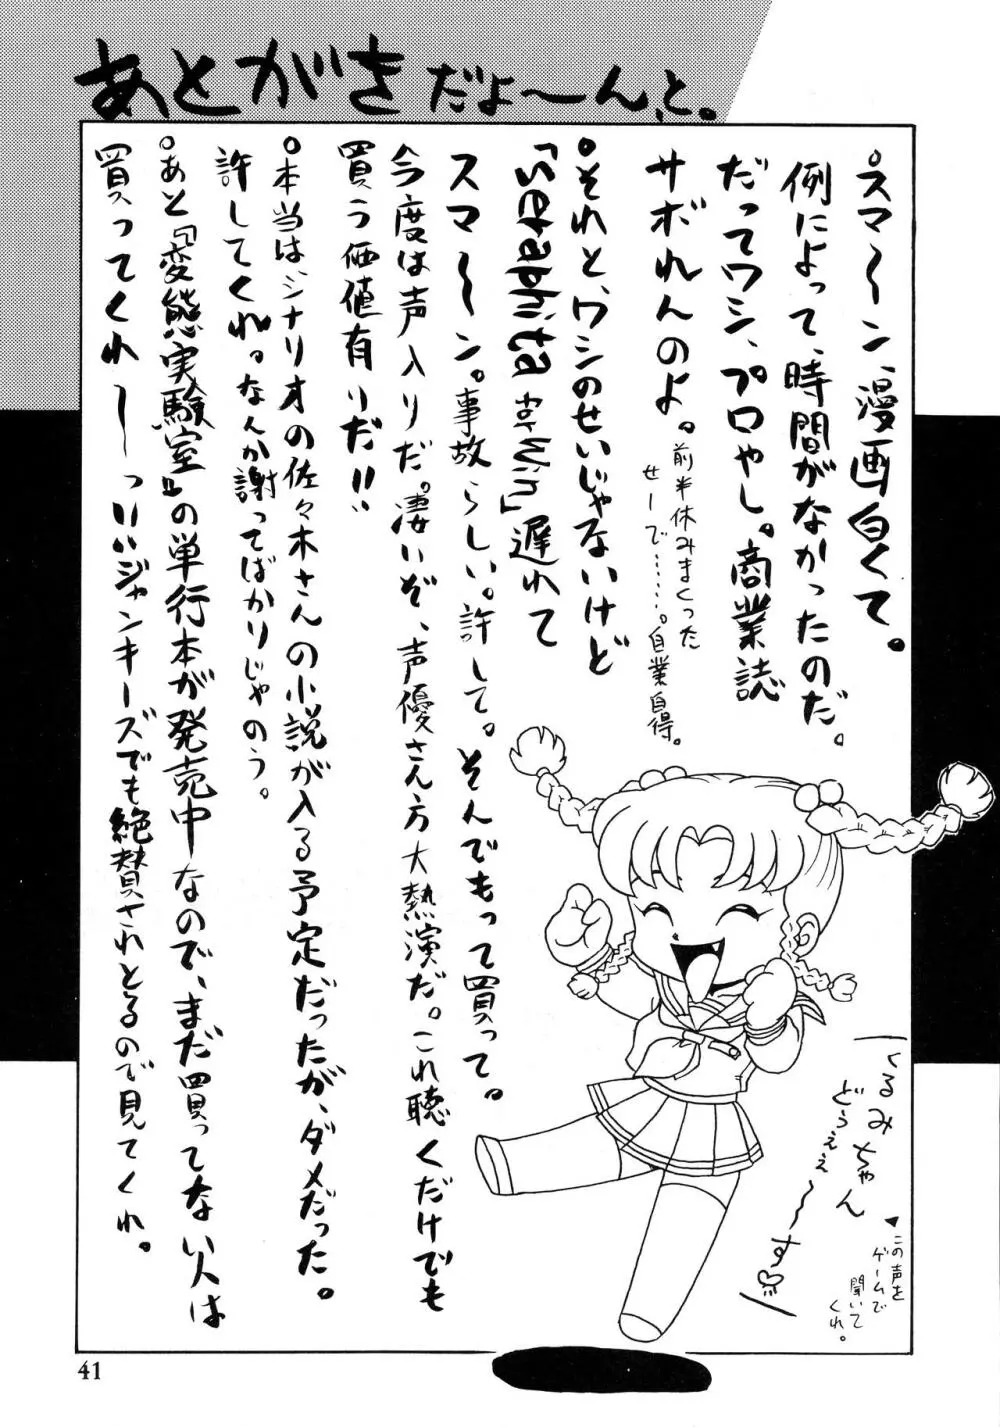 あとがきだよ〜ん、と。
。スマ〜ン、漫画白くて。
例によって、時間がなかったのだ。
だってワシ、プロやし。商業誌
サボれんのよ。
前半休みまくった
せーで……。自業自得。
。それと、ワシのせいじゃないけど
「Seraphita for Win」遅れて
スマ〜ン。事故らしい。許して。そんでもって買って。
今度は声入りだ。凄いぞ、声優さん方大熱演だ。これ聴くだけでも
買う価値有りだ!!
。本当はシナリオの佐々木さんの小説が入る予定だったが、ダメだった。
許してくれ。なんか謝ってばかりじゃのう。
。あと『変態実験室』の単行本が発売中なので、まだ買ってない人は
買ってくれ〜〜っ!いいジャンキーズでも絶賛されとるので見てくれ。
くるみちゃん
どぅぇぇ〜〜す♡
この声を
ゲームで
聞いて
くれ。
41